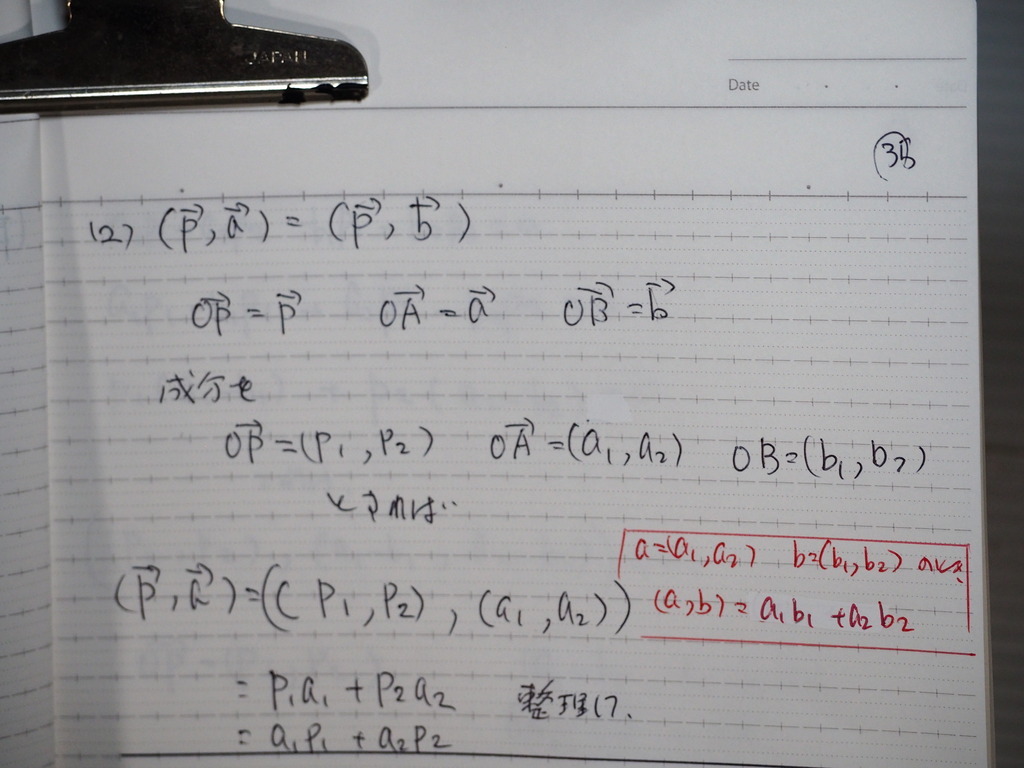 JAPAN
Date
(2) (p⃗, a⃗) = (p⃗, b⃗)
OP⃗ = p⃗ OA⃗ = a⃗ OB⃗ = b⃗
成分を
OP⃗ = (P₁, P₂) OA⃗ = (a₁, a₂) OB = (b₁, b₂)
とすれば‥
a = (a₁, a₂) b = (b₁, b₂) のとき、
(a, b) = a₁b₁ + a₂b₂
(p⃗, a⃗) = ((P₁, P₂), (a₁, a₂))
= P₁a₁ + P₂a₂ 整理して、
= a₁P₁ + a₂P₂